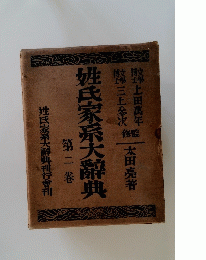 文学博士 上田萬年
文学博士 三上参次 監修
太田亮著
姓氏家系大辭典
第二卷
姓氏家系大辭典刊行會刊